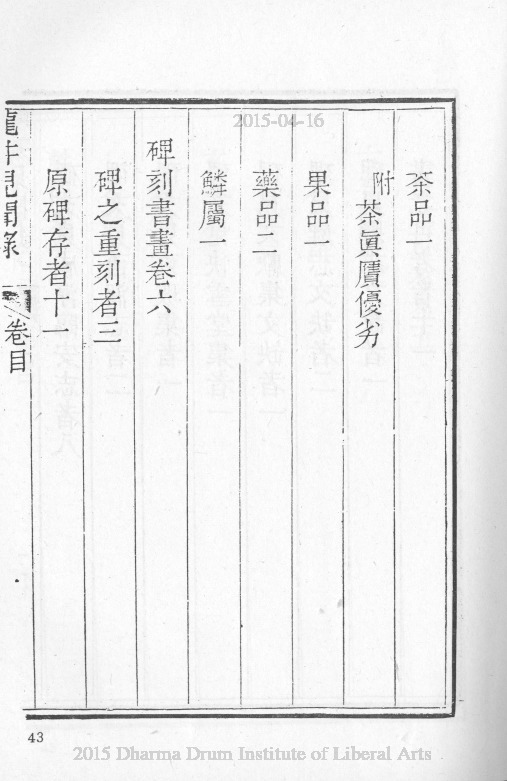 2015-04-16
茶品一
附
茶眞贋優劣
果品一
藥品二
鱗屬一
碑刻書畫卷六
碑之重刻者三
原碑存者十一
龍井見聞錄
卷目
43
2015 Dharma Drum Institute of Liberal Arts